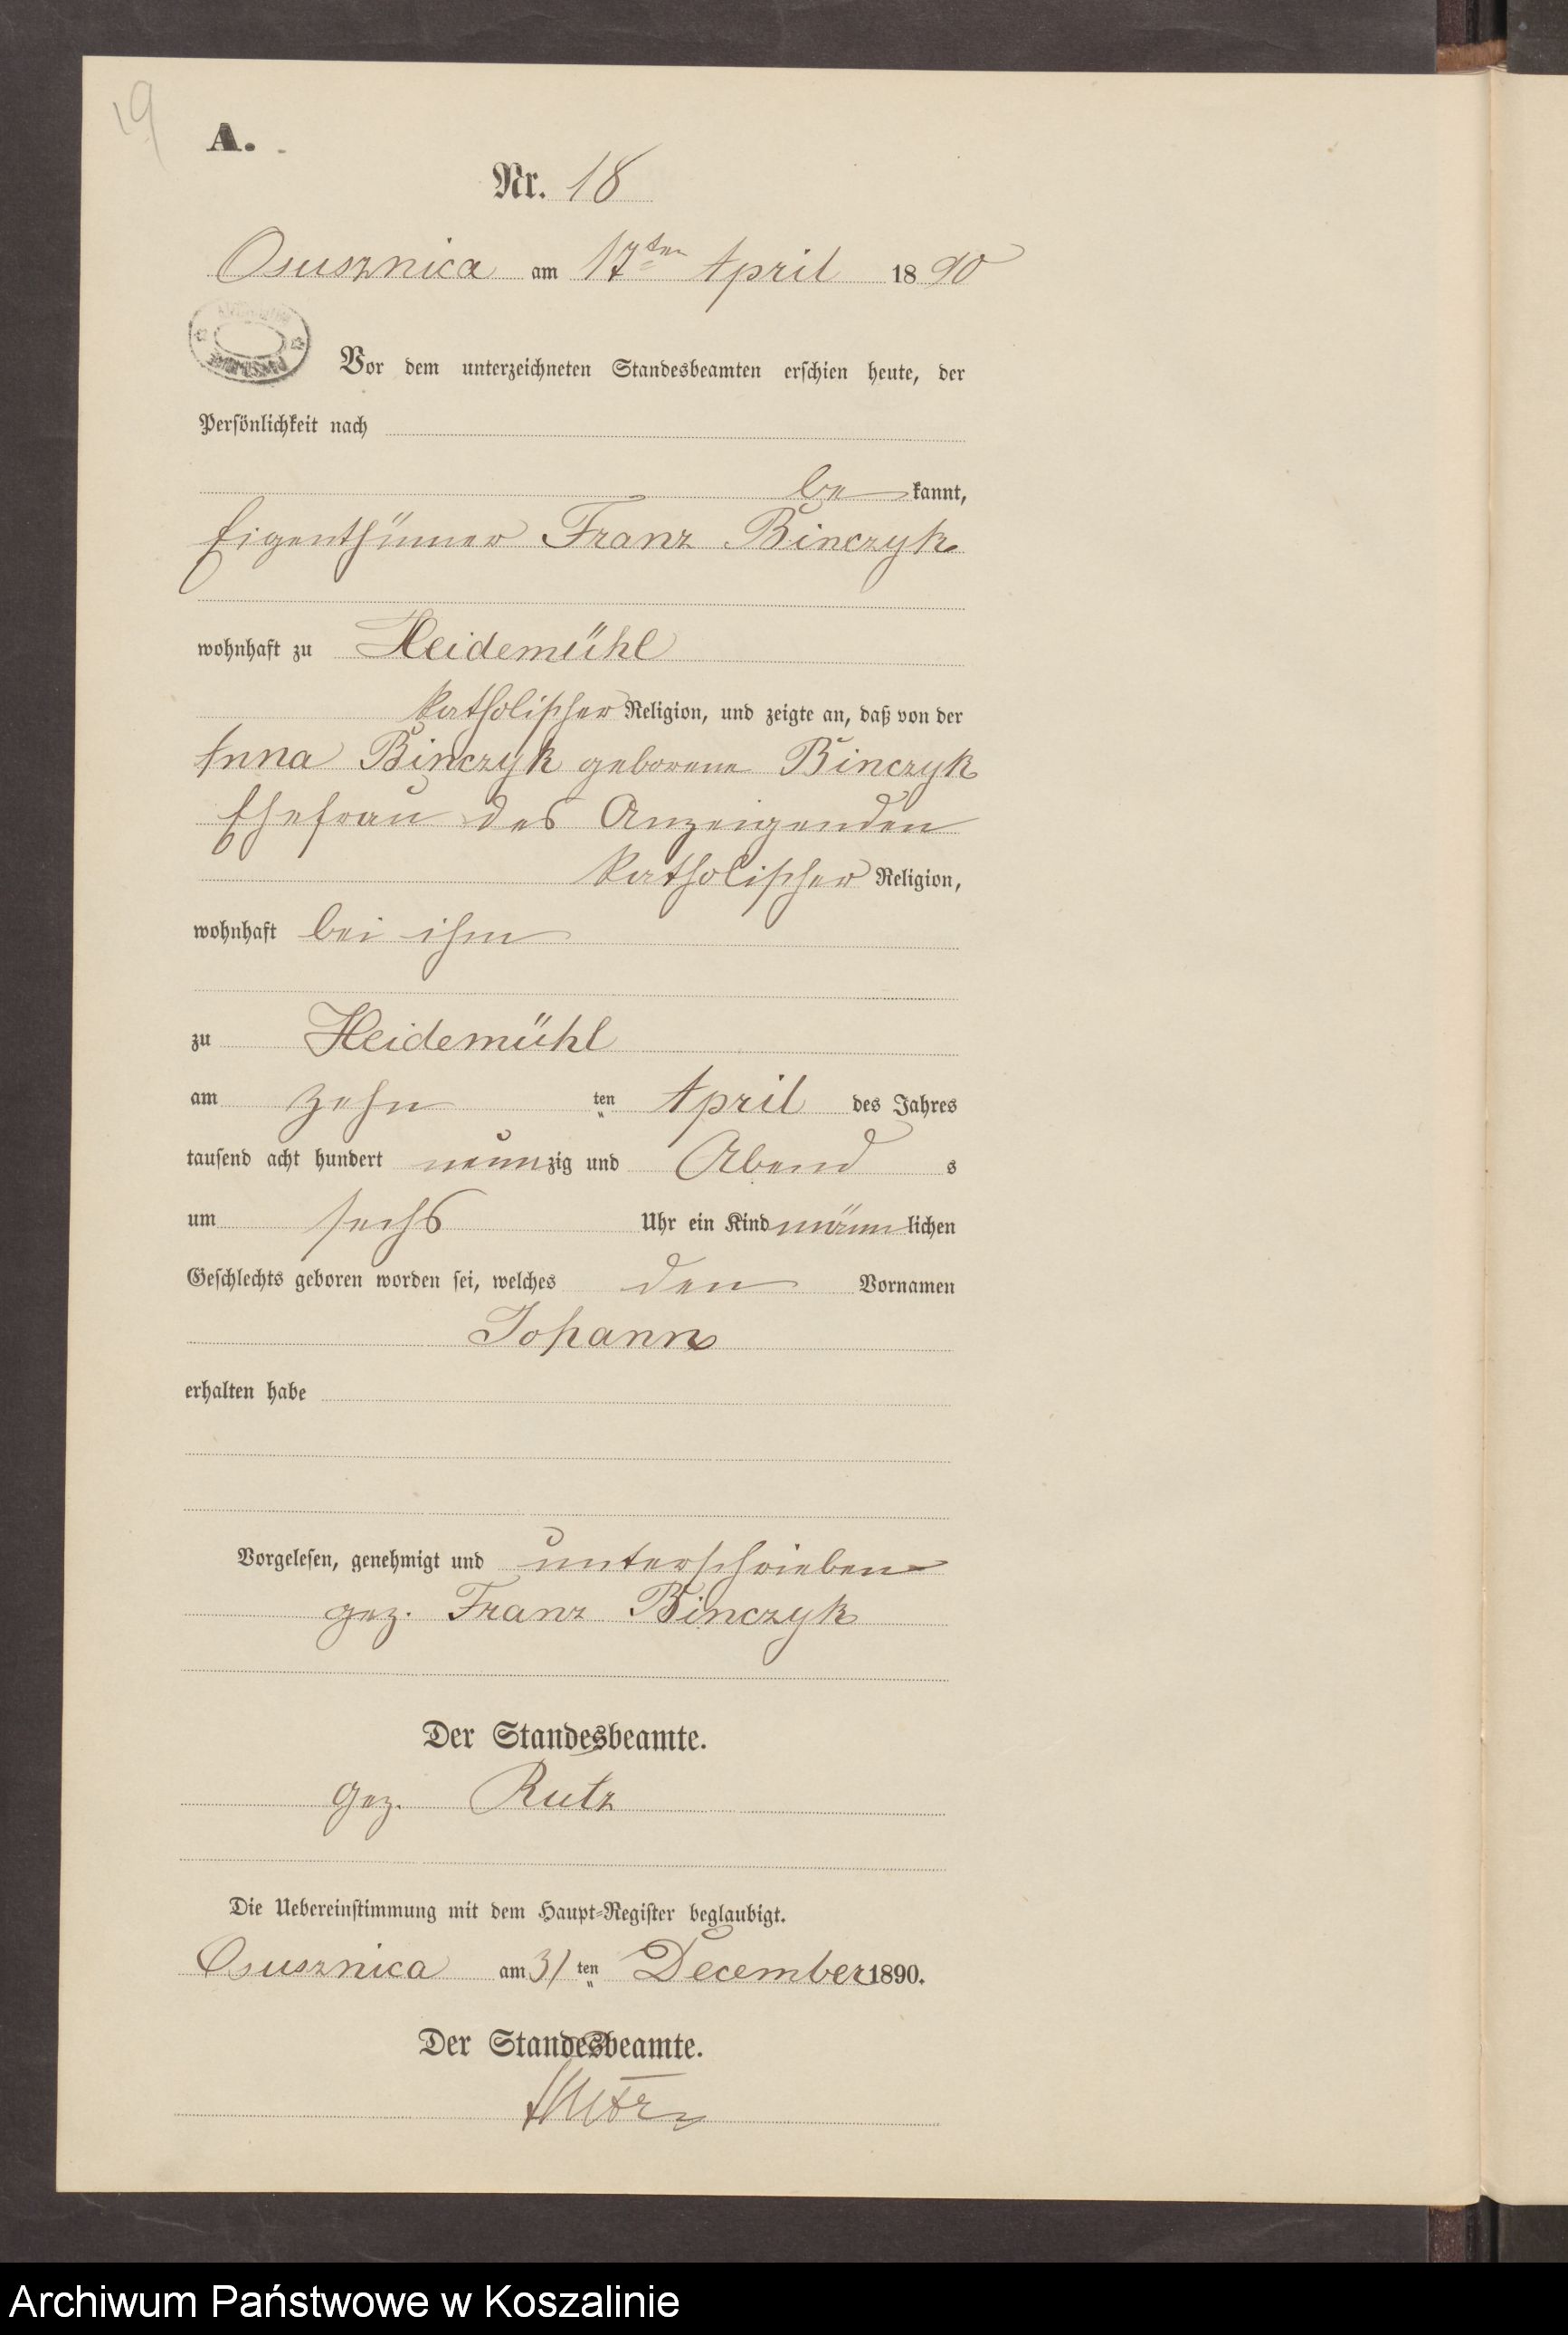 19
A.
Nr. 18
Osusznica am 17ten April 1890
Vor dem unterzeichneten Standesbeamten erschien heute, der
Persönlichkeit nach
bekannt,
Eigenthümer Franz Binczyk
wohnhaft zu Heidemühl
katholischer Religion, und zeigte an, daß von der
Anna Binczyk geborene Binczyk
Ehefrau des Anzeigenden
katholischer Religion,
wohnhaft bei ihm
zu Heidemühl
am zehn ten April des Jahres
tausend acht hundert neunzig und Abend s
um sechs Uhr ein Kind männlichen
Geschlechts geboren worden sei, welches den Vornamen
Johann
erhalten habe
Vorgelesen, genehmigt und unterschrieben
gez. Franz Binczyk
Der Standesbeamte.
gez. Rutz
Die Uebereinstimmung mit dem Haupt-Register beglaubigt.
Osusznica am 31 ten December 1890.
Der Standesbeamte.
Archiwum Państwowe w Koszalinie